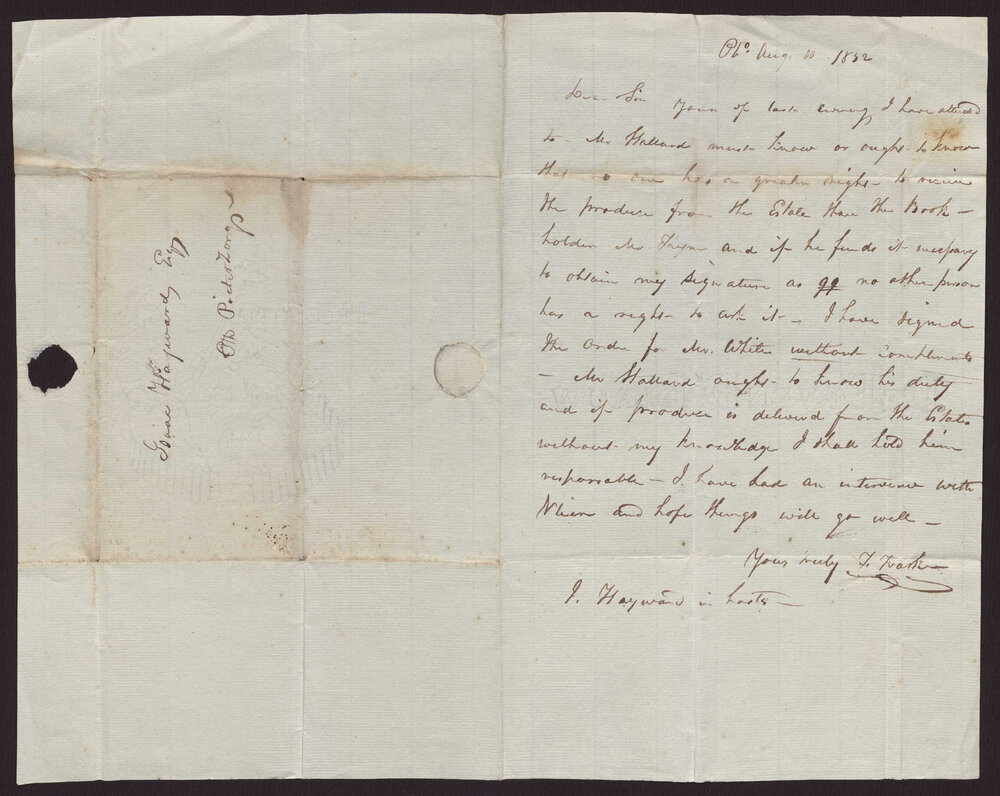 Isaac Hayward, Esq
Pieterszorg
Pbo. Aug. 10 1832
Dear Sir Yours of last evening I have attended
to - Mr Halland must know or ought to know
that no one has a greater right to receive
the produce from the Estate than the Book -
holder Mr and if he finds it necessary
to obtain my signature as qq no other person
has a right to ask it - I have signed
the order for Mr. White without compliments
- Mr Halland ought to know his duty
and if produce is delivered from the Estates
without my knowledge I shall hold him
responsable - I have had an interview with
and hope things will go well -
Yours truly
I. Hayward in haste -